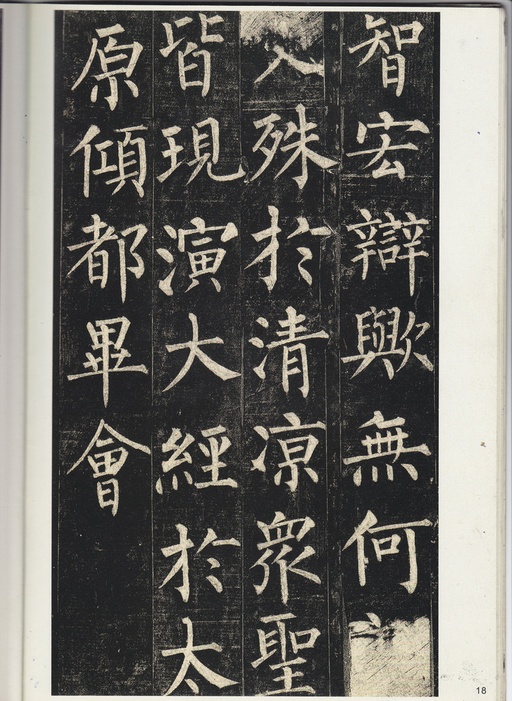 智宏辯歟無何
殊於清涼衆聖
皆現演大經於太
原傾都畢會
18